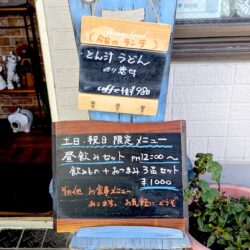 今日のランチ
とん汁うどん
のり巻付
coffee付 ¥980
土日、祝日 限定メニュー
昼飲みセット PM12:00〜
飲みもの+おつまみ3品セット
¥1000
その他 お食事メニュー
あります。お気軽にどうぞ